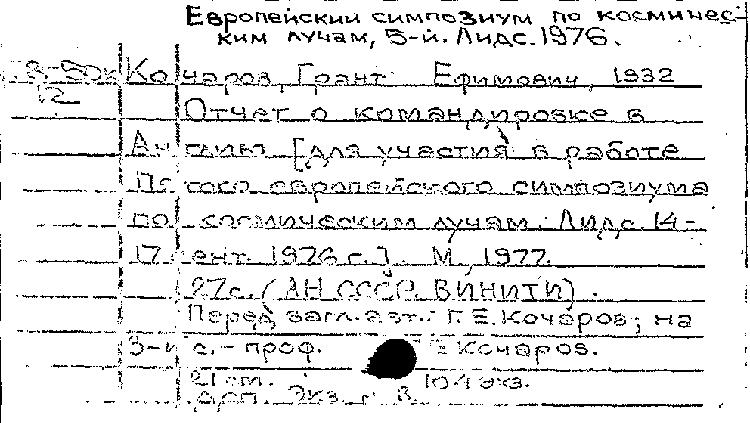 Европейский симпозиум по космичес-
ким лучам, 5-й. Лидс. 1976.
Кочаров, Грант Ефимович, 1932
12
Отчет о командировке в
Англию [для участия в работе
Пятого европейского симпозиума
по космическим лучам. Лидс. 14-
17 сент. 1976 г.]. М., 1977.
27с. (АН СССР. ВИНИТИ).
Перед загл. авт.: Г.Е. Кочаров; на
3-й с. - проф. Г.Е. Кочаров.
21 см. 104 экз.